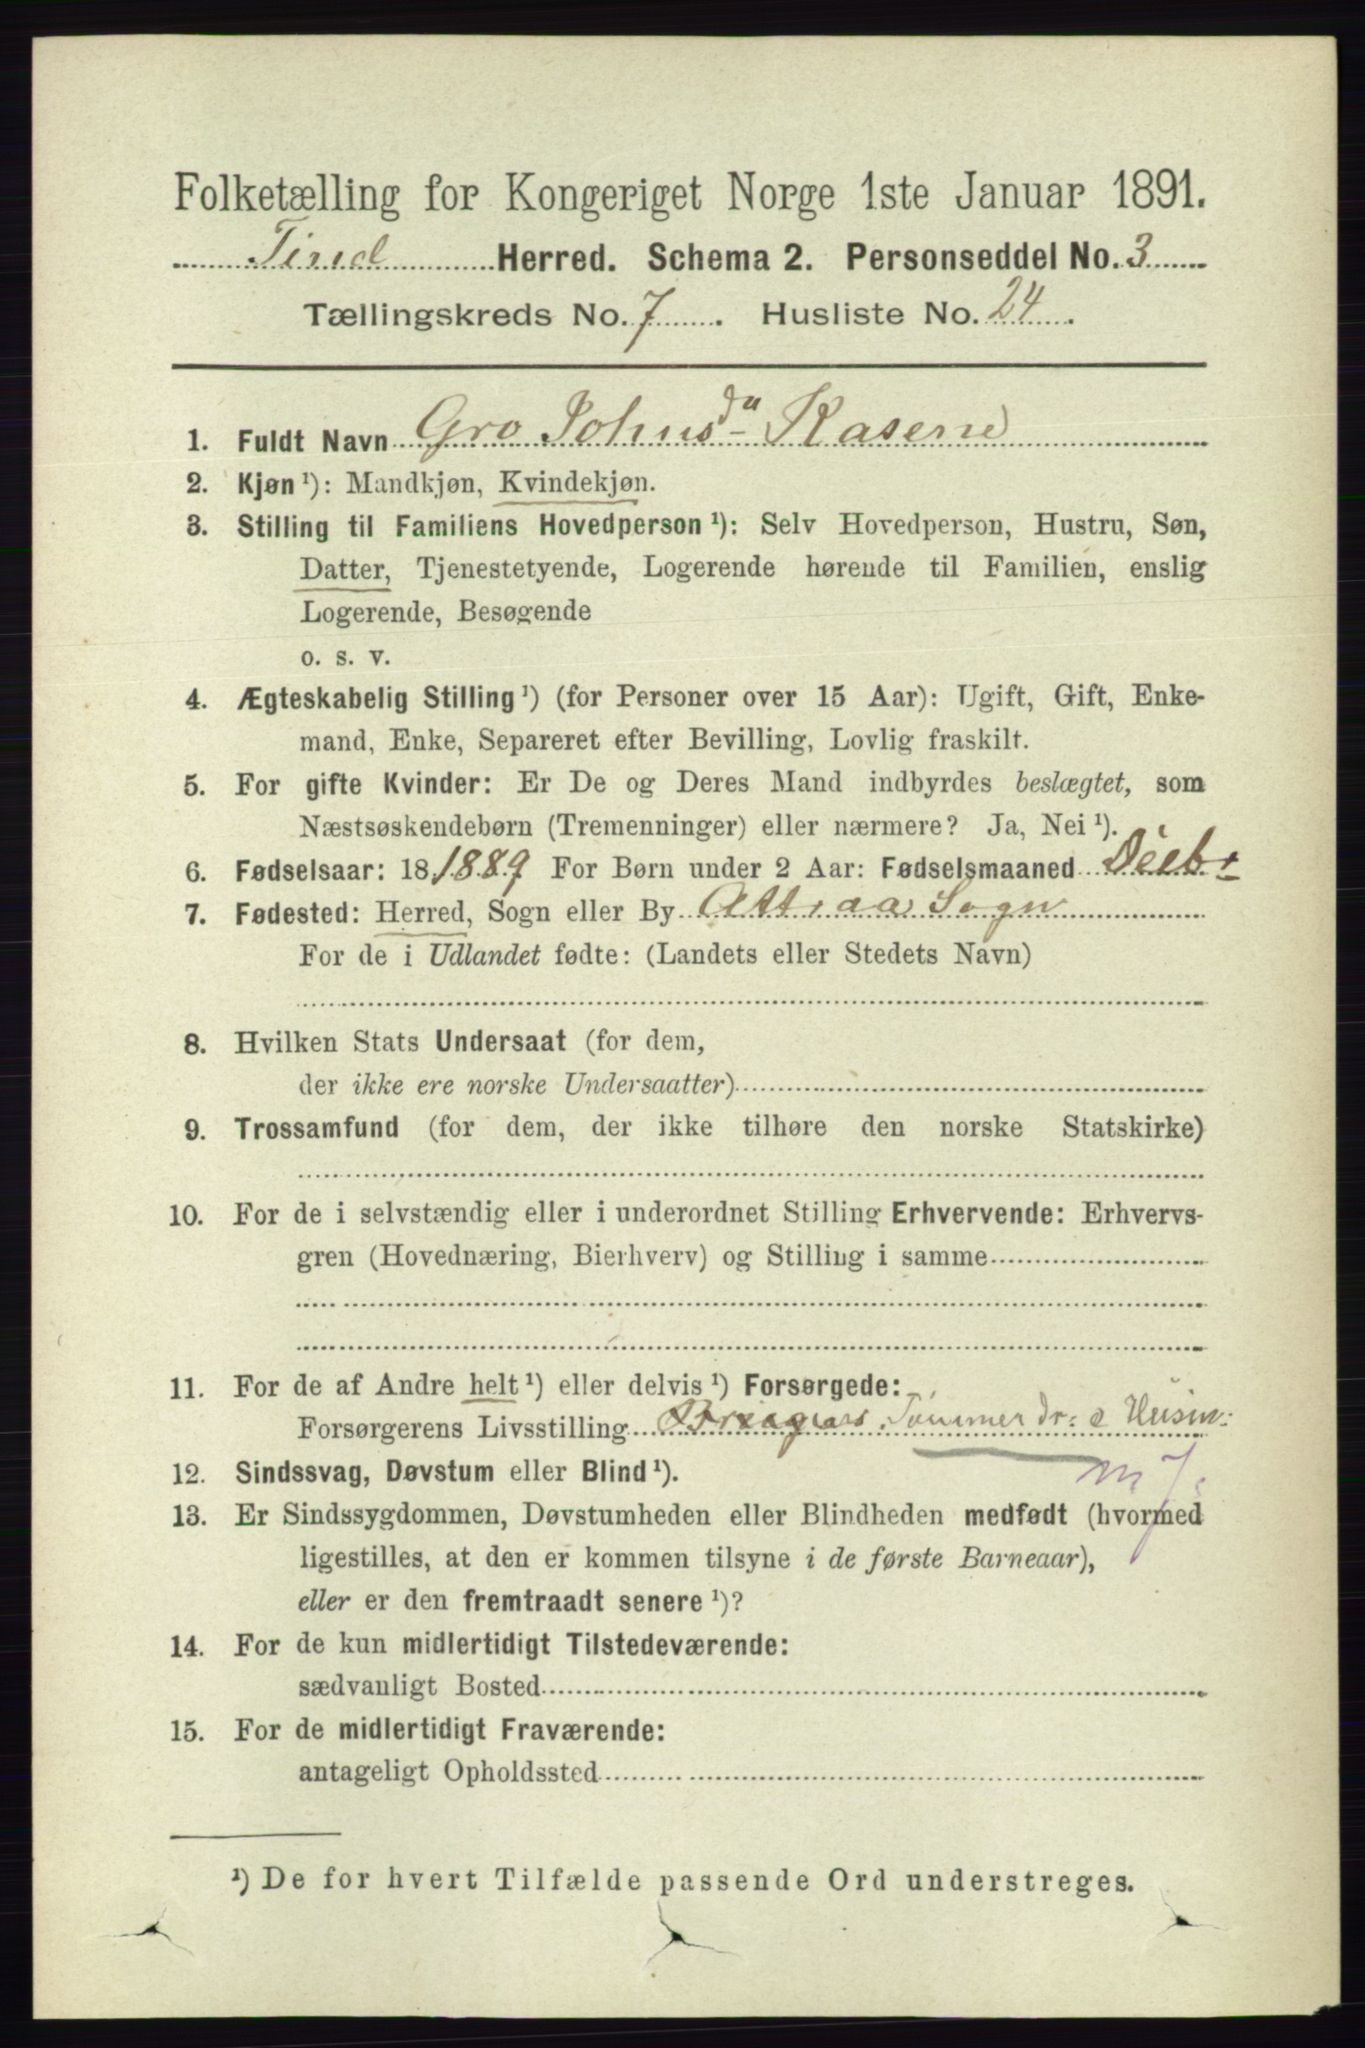 Folketælling for Kongeriget Norge 1ste Januar 1891.
Tind Herred. Schema 2. Personseddel No. 3
Tællingskreds No. 7. Husliste No. 24.
1. Fuldt Navn Gro Johnsda Kasene
2. Kjøn¹): Mandkjøn, Kvindekjøn.
3. Stilling til Familiens Hovedperson¹): Selv Hovedperson, Hustru, Søn,
Datter, Tjenestetyende, Logerende hørende til Familien, enslig
Logerende, Besøgende
o. s. v.
4. Ægteskabelig Stilling¹) (for Personer over 15 Aar): Ugift, Gift, Enke-
mand, Enke, Separeret efter Bevilling, Lovlig fraskilt.
5. For gifte Kvinder: Er De og Deres Mand indbyrdes beslægtet, som
Næstsøskendebørn (Tremenninger) eller nærmere? Ja, Nei¹).
6. Fødselsaar: 18 1889 For Børn under 2 Aar: Fødselsmaaned Decbr
7. Fødested: Herred, Sogn eller By Attraa Sogn
For de i Udlandet fødte: (Landets eller Stedets Navn)
8. Hvilken Stats Undersaat (for dem,
der ikke ere norske Undersaatter)
9. Trossamfund (for dem, der ikke tilhøre den norske Statskirke)
10. For de i selvstændig eller i underordnet Stilling Erhvervende: Erhvervs-
gren (Hovednæring, Bierhverv) og Stilling i samme
11. For de af Andre helt¹) eller delvis¹) Forsørgede:
Forsørgerens Livsstilling Tømmer dr:
12. Sindssvag, Døvstum eller Blind¹).
13. Er Sindssygdommen, Døvstumheden eller Blindheden medfødt (hvormed
ligestilles, at den er kommen tilsyne i de første Barneaar),
eller er den fremtraadt senere¹)?
14. For de kun midlertidigt Tilstedeværende:
sædvanligt Bosted
15. For de midlertidigt Fraværende:
antageligt Opholdssted
¹) De for hvert Tilfælde passende Ord understreges.